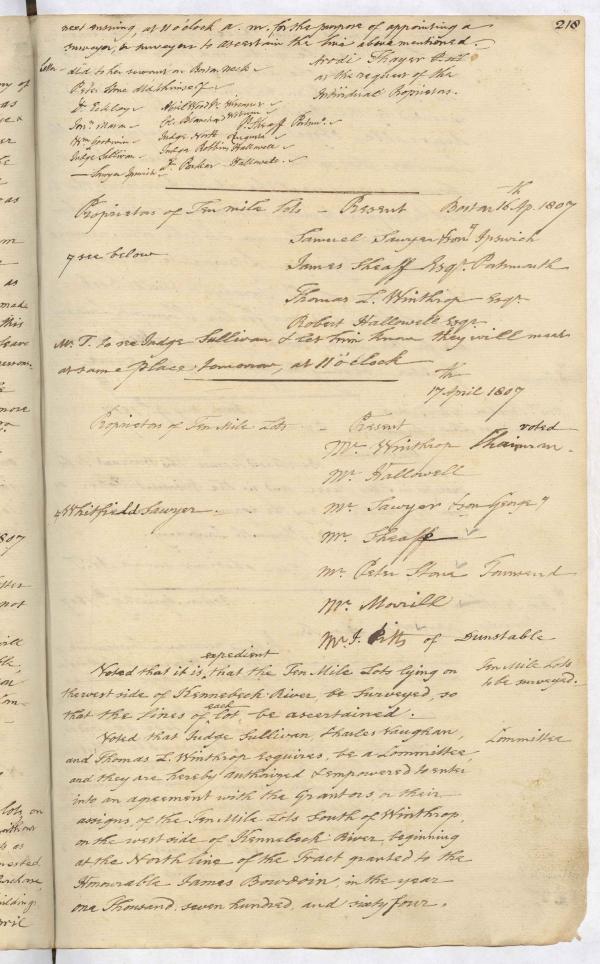 218
next ensuing, at 11 oClock a. m. for the purpose of appointing a
surveyor, or surveyors to ascertain the line above mentioned.
Letter — dld to her servant on Boston Neck
Arodi Thayer Clk
at the request of the
Individual Proprietors.
Peter Stone dld himself
D. Eckley
Abiel Wood Jr. Wiscasset
Jona. Mason
Col. Blanchard
P. Sheaff Portsmo.
Wm Goodwin
Judge North Augusta
Judge Sullivan
Judge Robbins Hallowell
— Sawyer Ipswich
D. Parker Hallowell
Proprietors of Ten mile Lots — Present Boston 16th Ap. 1807
Samuel Sawyer Ipswich
see below
James Sheaff Esqr. Portsmouth
Thomas L. Winthrop Esqr.
Robert Hallowell Esqr.
Mr. T. to see Judge Sullivan & let him know they will meet
at same place tomorrow, at 11 oClock
17th April 1807
Proprietors of Ten Mile Lots — Present
Mr. Winthrop voted Chairman.
Mr. Hallowell
Whitfield Sawyer.
Mr. Sawyer & son George
Mr. Sheaffe
Mr. Peter Stone Townsend
Mr. Morrill
Mr. J. Pitts of Dunstable
Voted that it is expedient that the Ten Mile Lots lying on
Ten Mile Lots
to be surveyed.
the west side of Kennebeck River, be surveyed, so
that the lines of each Lot, be ascertained.
Voted that Judge Sullivan, Charles Vaughan,
Committee
and Thomas L. Winthrop Esquires, be a Committee,
and they are hereby authorized & empowered to enter
into an agreement with the Grantors or their
assigns of the Ten Mile Lots South of Winthrop,
on the west side of Kennebeck River, beginning
at the North line of the Tract granted to the
Honourable James Bowdoin, in the year
one Thousand, seven hundred, and sixty four.